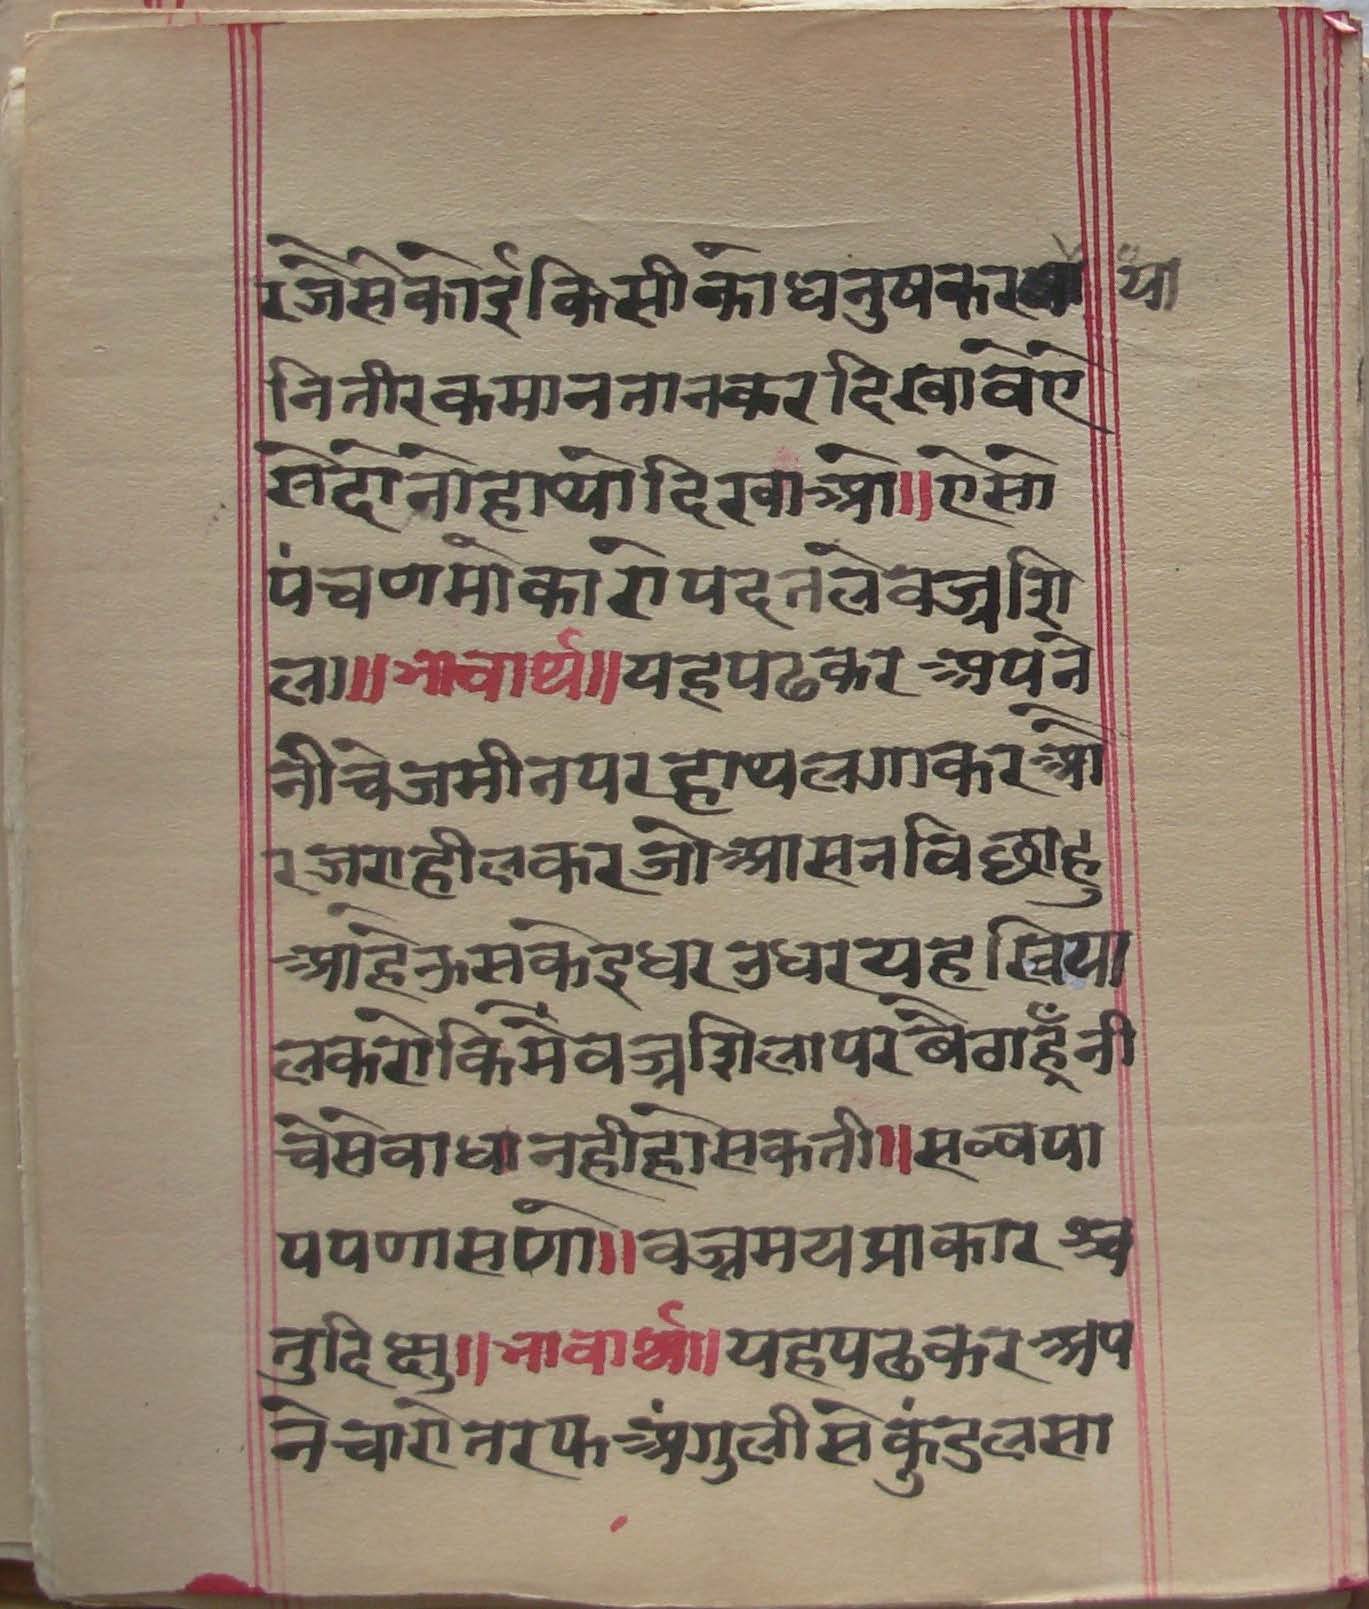 रजैसेकोईकिसीकोधनुषकर या
नितीरकमानतानकरदिखावेंऐ
सेदोनोहाथोदिखाओ॥ऐसो
पंचणमोकारोपदतलेवज्रशि
ला॥भावार्थ॥यहपढकरअपने
नीचेजमीनपरहाथलगाकरओ
रजराहीलकरजोआसनविछाहु
आहेउसकेइधरउधरयहखिया
लकरोकिमैंवज्रशिलापरबैठाहूँनी
चेसेवाधानहीहोसकती॥सव्वपा
पपणासणो॥वज्रमयप्राकारश्च
तुदिक्षु॥भावार्थ॥यहपढकरअप
नेचारोतरफअंगुलीसेकुंडलसा